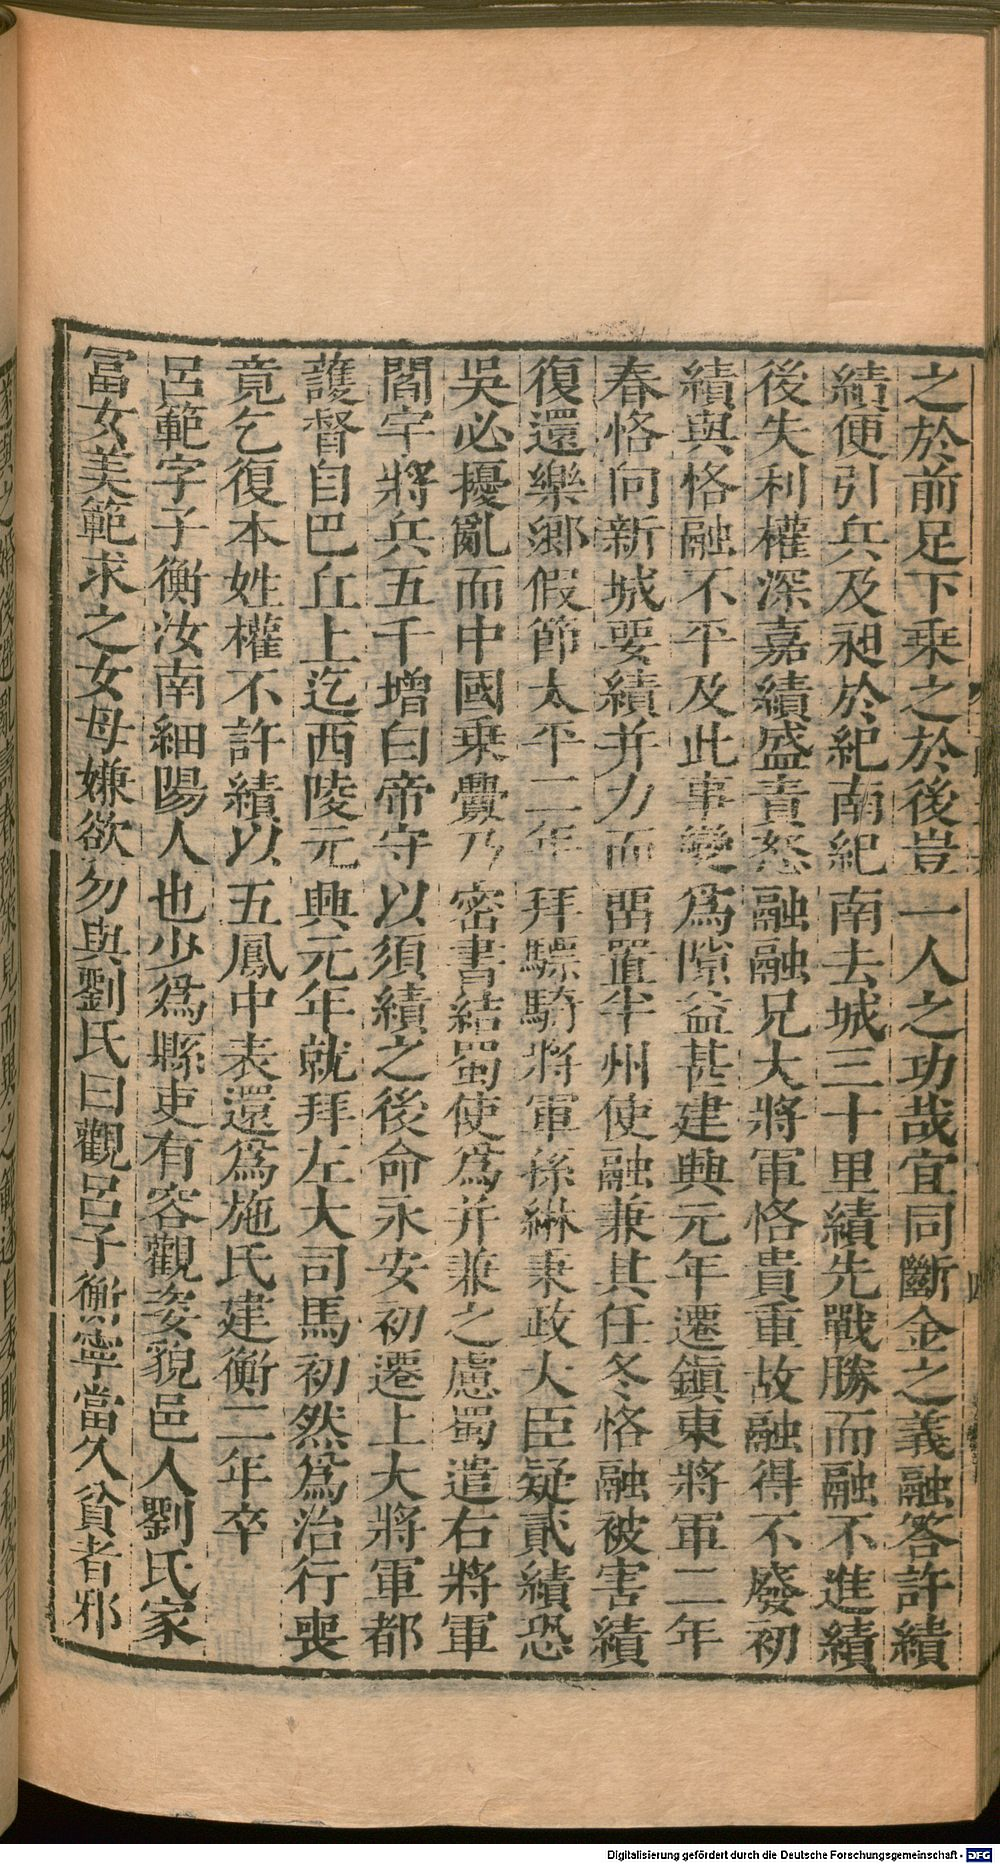 之於前足下乗之於後豈一人之功哉宜同斷金之義融答許績
績便引兵及昶於紀南紀南去城三十里績先戰勝而融不進績
後失利權深嘉績盛責怒融融兄大將軍恪貴重故融得不廢初
績與恪融不平及此事變爲隙益甚建興元年遷鎮東將軍二年
春恪向新城要績并力而畱置半州使融兼其任冬恪融被害績
復還樂郷假節太平二年拜驃騎將軍孫綝秉政大臣疑貳績恐
吳必擾亂而中國乗釁乃密書結蜀使爲并兼之慮蜀遣右將軍
閻宇將兵五千增白帝守以須績之後命永安初遷上大將軍都
護督自巴丘上迄西陵元興元年就拜左大司馬初然爲治行喪
竟乞復本姓權不許績以五鳳中表還爲施氏建衡二年卒
呂範字子衡汝南細陽人也少爲縣吏有容觀姿貌邑人劉氏家
冨女美範求之女母嫌欲勿與劉氏曰觀呂子衡寧當久貧者邪
Digitalisierung gefördert durch die Deutsche Forschungsgemeinschaft - DFG